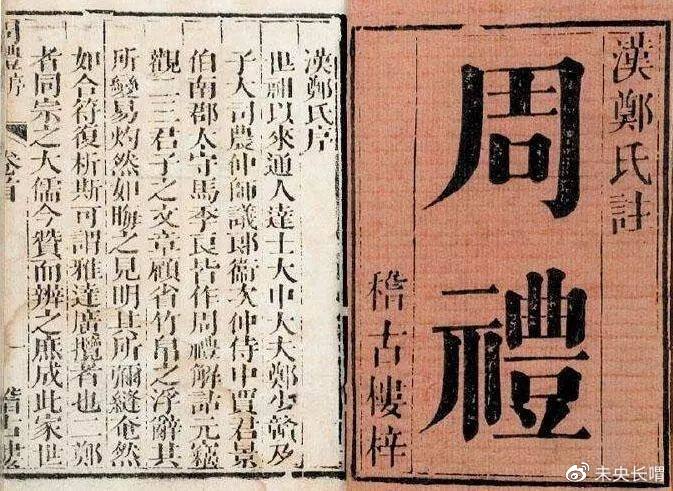 漢鄭氏註
周禮
稽古樓梓
漢鄭氏序
世祖以來通人達士大中大夫鄭少贛及
子大司農仲師議郎衛次仲侍中賈君景
伯南郡太守馬季良皆作周禮解詁元竊
觀二三君子之文章顧省竹帛之浮辭其
所變易灼然如晦之見明其所彌縫奄然
如合符復析斯可謂雅達廣攬者也二鄭
者同宗之大儒今贊而辨之庶成此家世
周禮序 卷首 一 稽古樓
未央长喟